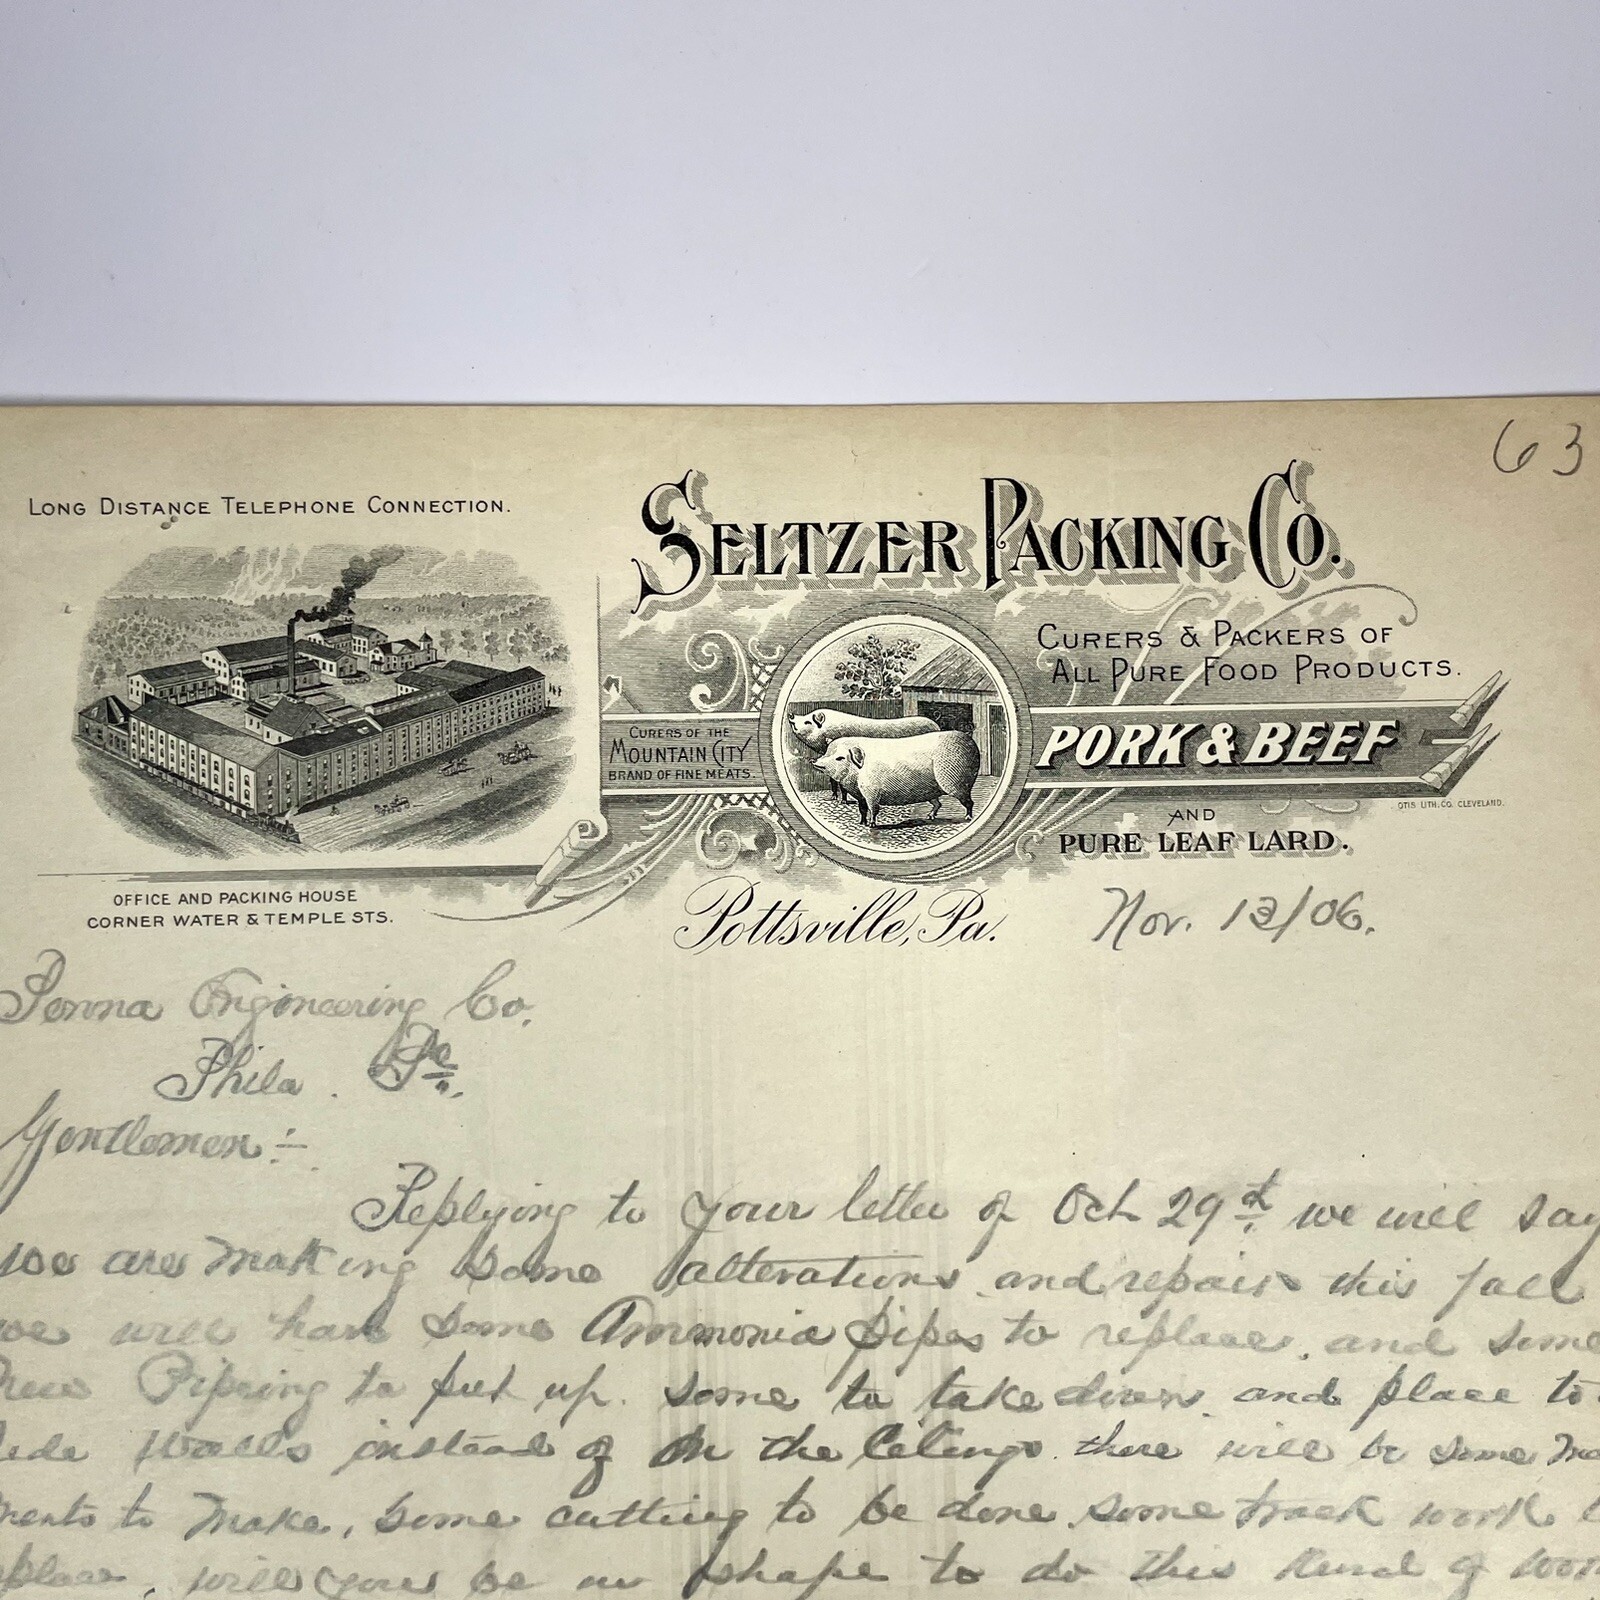 63
LONG DISTANCE TELEPHONE CONNECTION.
SELTZER PACKING CO.
CURERS & PACKERS OF
ALL PURE FOOD PRODUCTS.
CURERS OF THE
MOUNTAIN CITY
BRAND OF FINE MEATS.
PORK & BEEF
OTIS LITH. CO. CLEVELAND.
AND
PURE LEAF LARD.
OFFICE AND PACKING HOUSE
CORNER WATER & TEMPLE STS.
Pottsville, Pa.
Nov. 13/06.
Penna Engineering Co.
Phila. Pa.
Gentlemen:-
Replying to your letter of Oct 29st we will say
we are making some alterations and repairs this fall
we will have some Ammonia pipes to replace, and some
new Pipeing to put up. some to take down, and place to
side walls instead of on the Celings. there will be some
to make, some cutting to be done some track work
place, will you be in shape to do this kind of